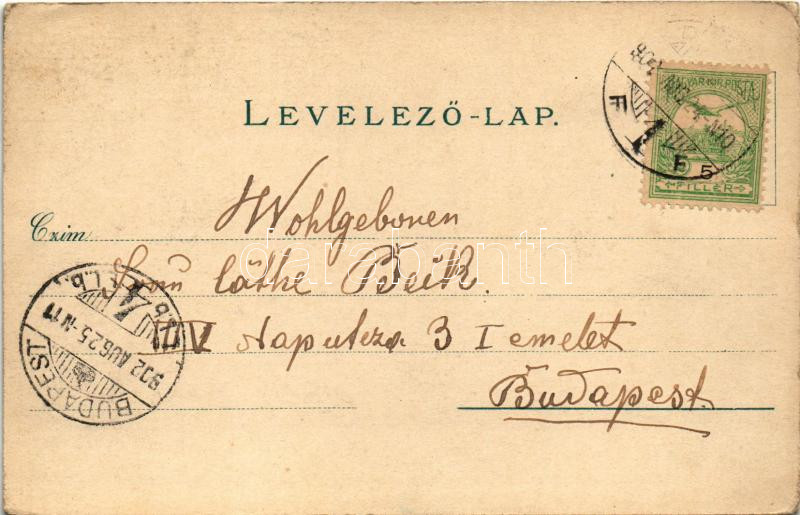 LEVELEZŐ-LAP.
MAGYAR KIR. POSTA
5
FILLÉR
Czim
Wohlgeboren
Frau Käthe Beck
IV Naputcza 3 I emelet
Budapest.
BUDAPEST
902 AUG 25 N11
darabanth